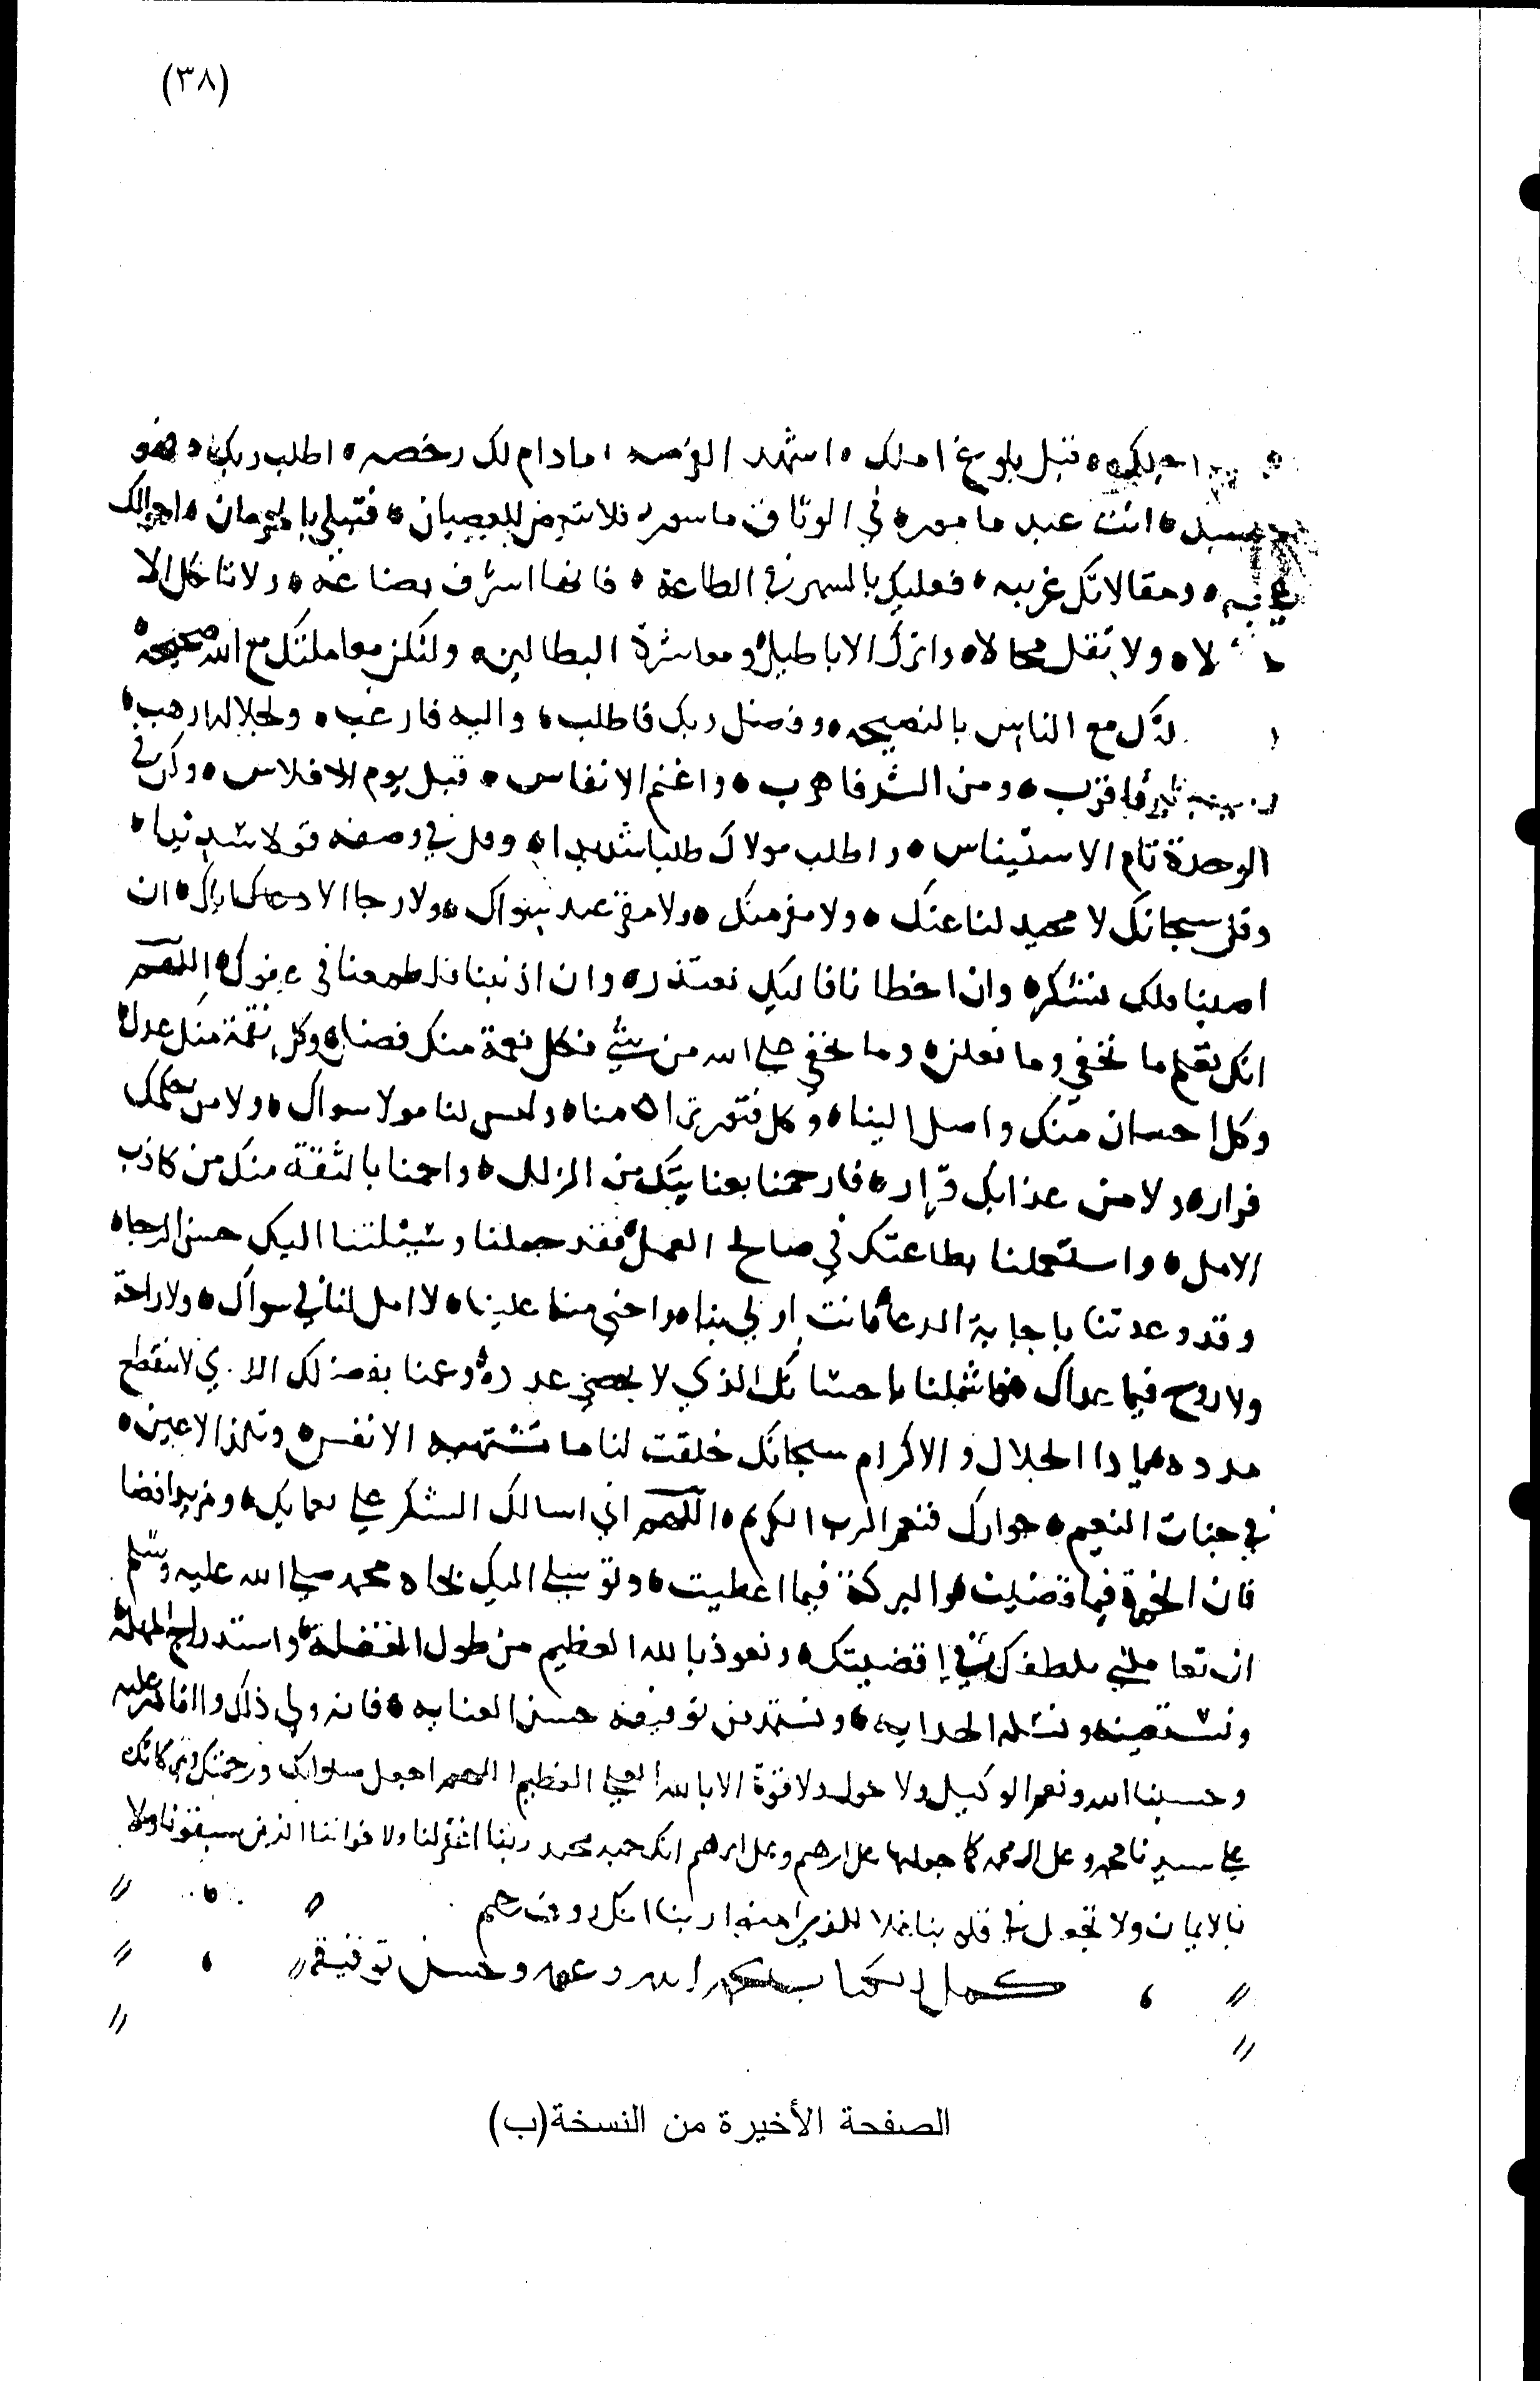 (٣٨)
قبل بلوغ املك اشهد مادام لك رخصه اطلب ربك
انت عبد مامور في الوثاق ماسور فلا تتعرض للعصيان فتبلى بالحرمان احوالك
ومقالاتك غريبه فعليك بالسهر في الطاعة فانها اشرف بضاعة ولا تاكل الا
ولا تقل محالا واترك الاباطيل ومعاشرة البطالين ولتكن معاملتك مع الله صحيحة
مع الناس بالنصيحه وفضل ربك فاطلب واليه فارغب ولجلاله ارهب
فاقرب ومن الشر فاهرب واغنم الانفاس قبل يوم الافلاس وكن في
الوحدة تام الاستيناس واطلب مولاك طلبا شديدا وقل في وصفه قولا
وقل سبحانك لا محيد لنا عنك ولا مفر منك ولا مقر عند سواك ولا رجا الا ان
اصبنا فلك نشكر وان اخطانا فاليك نعتذر وان اذنبنا فلطمعنا في عفوك اللهم
انك تعلم ما نخفي وما نعلن وما يخفي على الله من شي فكل نعمة منك فضل وكل نقمة منك عدل
وكل احسان منك واصل الينا وكل فتور تراه منا وليس لنا مولا سواك ولا من حكمك
فرار ولا من عذابك قرار فارحمنا بعنايتك من الزلل واحمنا بالثقة منك من كاذب
الامل واستعملنا بطاعتك في صالح العمل فقد جعلنا وسيلتنا اليك حسن الرجا
وقد وعدتنا باجابة الدعا فانت اولي بنا واحني منا علينا لا امل لنا في سواك ولا راحة
ولا روح فيما عداك فاشملنا باحسانك الذي لا يحصي عدده وعمنا بفضلك الذي لا ينقطع
مدده يا ذا الجلال والاكرام سبحانك خلقت لنا ما تشتهيه الانفس وتلذ الاعين
في جنات النعيم جوارك فنعم الرب الكريم اللهم اني اسالك الشكر علي نعمايك
فان الخيرة فيما قضيت والبركة فيما اعطيت وتوسلي اليك بجاه محمد صلي الله عليه وسلم
ان تعاملني بلطفك في اقضيتك ونعوذ بالله العظيم من طول الغفلة واستدراج المهلة
ونستعينه ونسئله الهدايه ونستمد من توفيقه حسن العنايه فانه ولي ذلك والقادر عليه
وحسبنا الله ونعم الوكيل ولا حول ولا قوة الا بالله العلي العظيم اللهم اجعل صلواتك ورحمتك وبركاتك
علي سيدنا محمد وعلى ال محمد كما جعلتها على ابرهيم وعلى ال ابرهيم انك حميد مجيد ربنا اغفر لنا ولاخواننا الذين سبقونا
بالايمان ولا تجعل في قلوبنا غلا للذين امنوا ربنا انك روف رحيم
كمل الكتاب بحمد الله وعونه وحسن توفيقه
الصفحة الأخيرة من النسخة(ب)